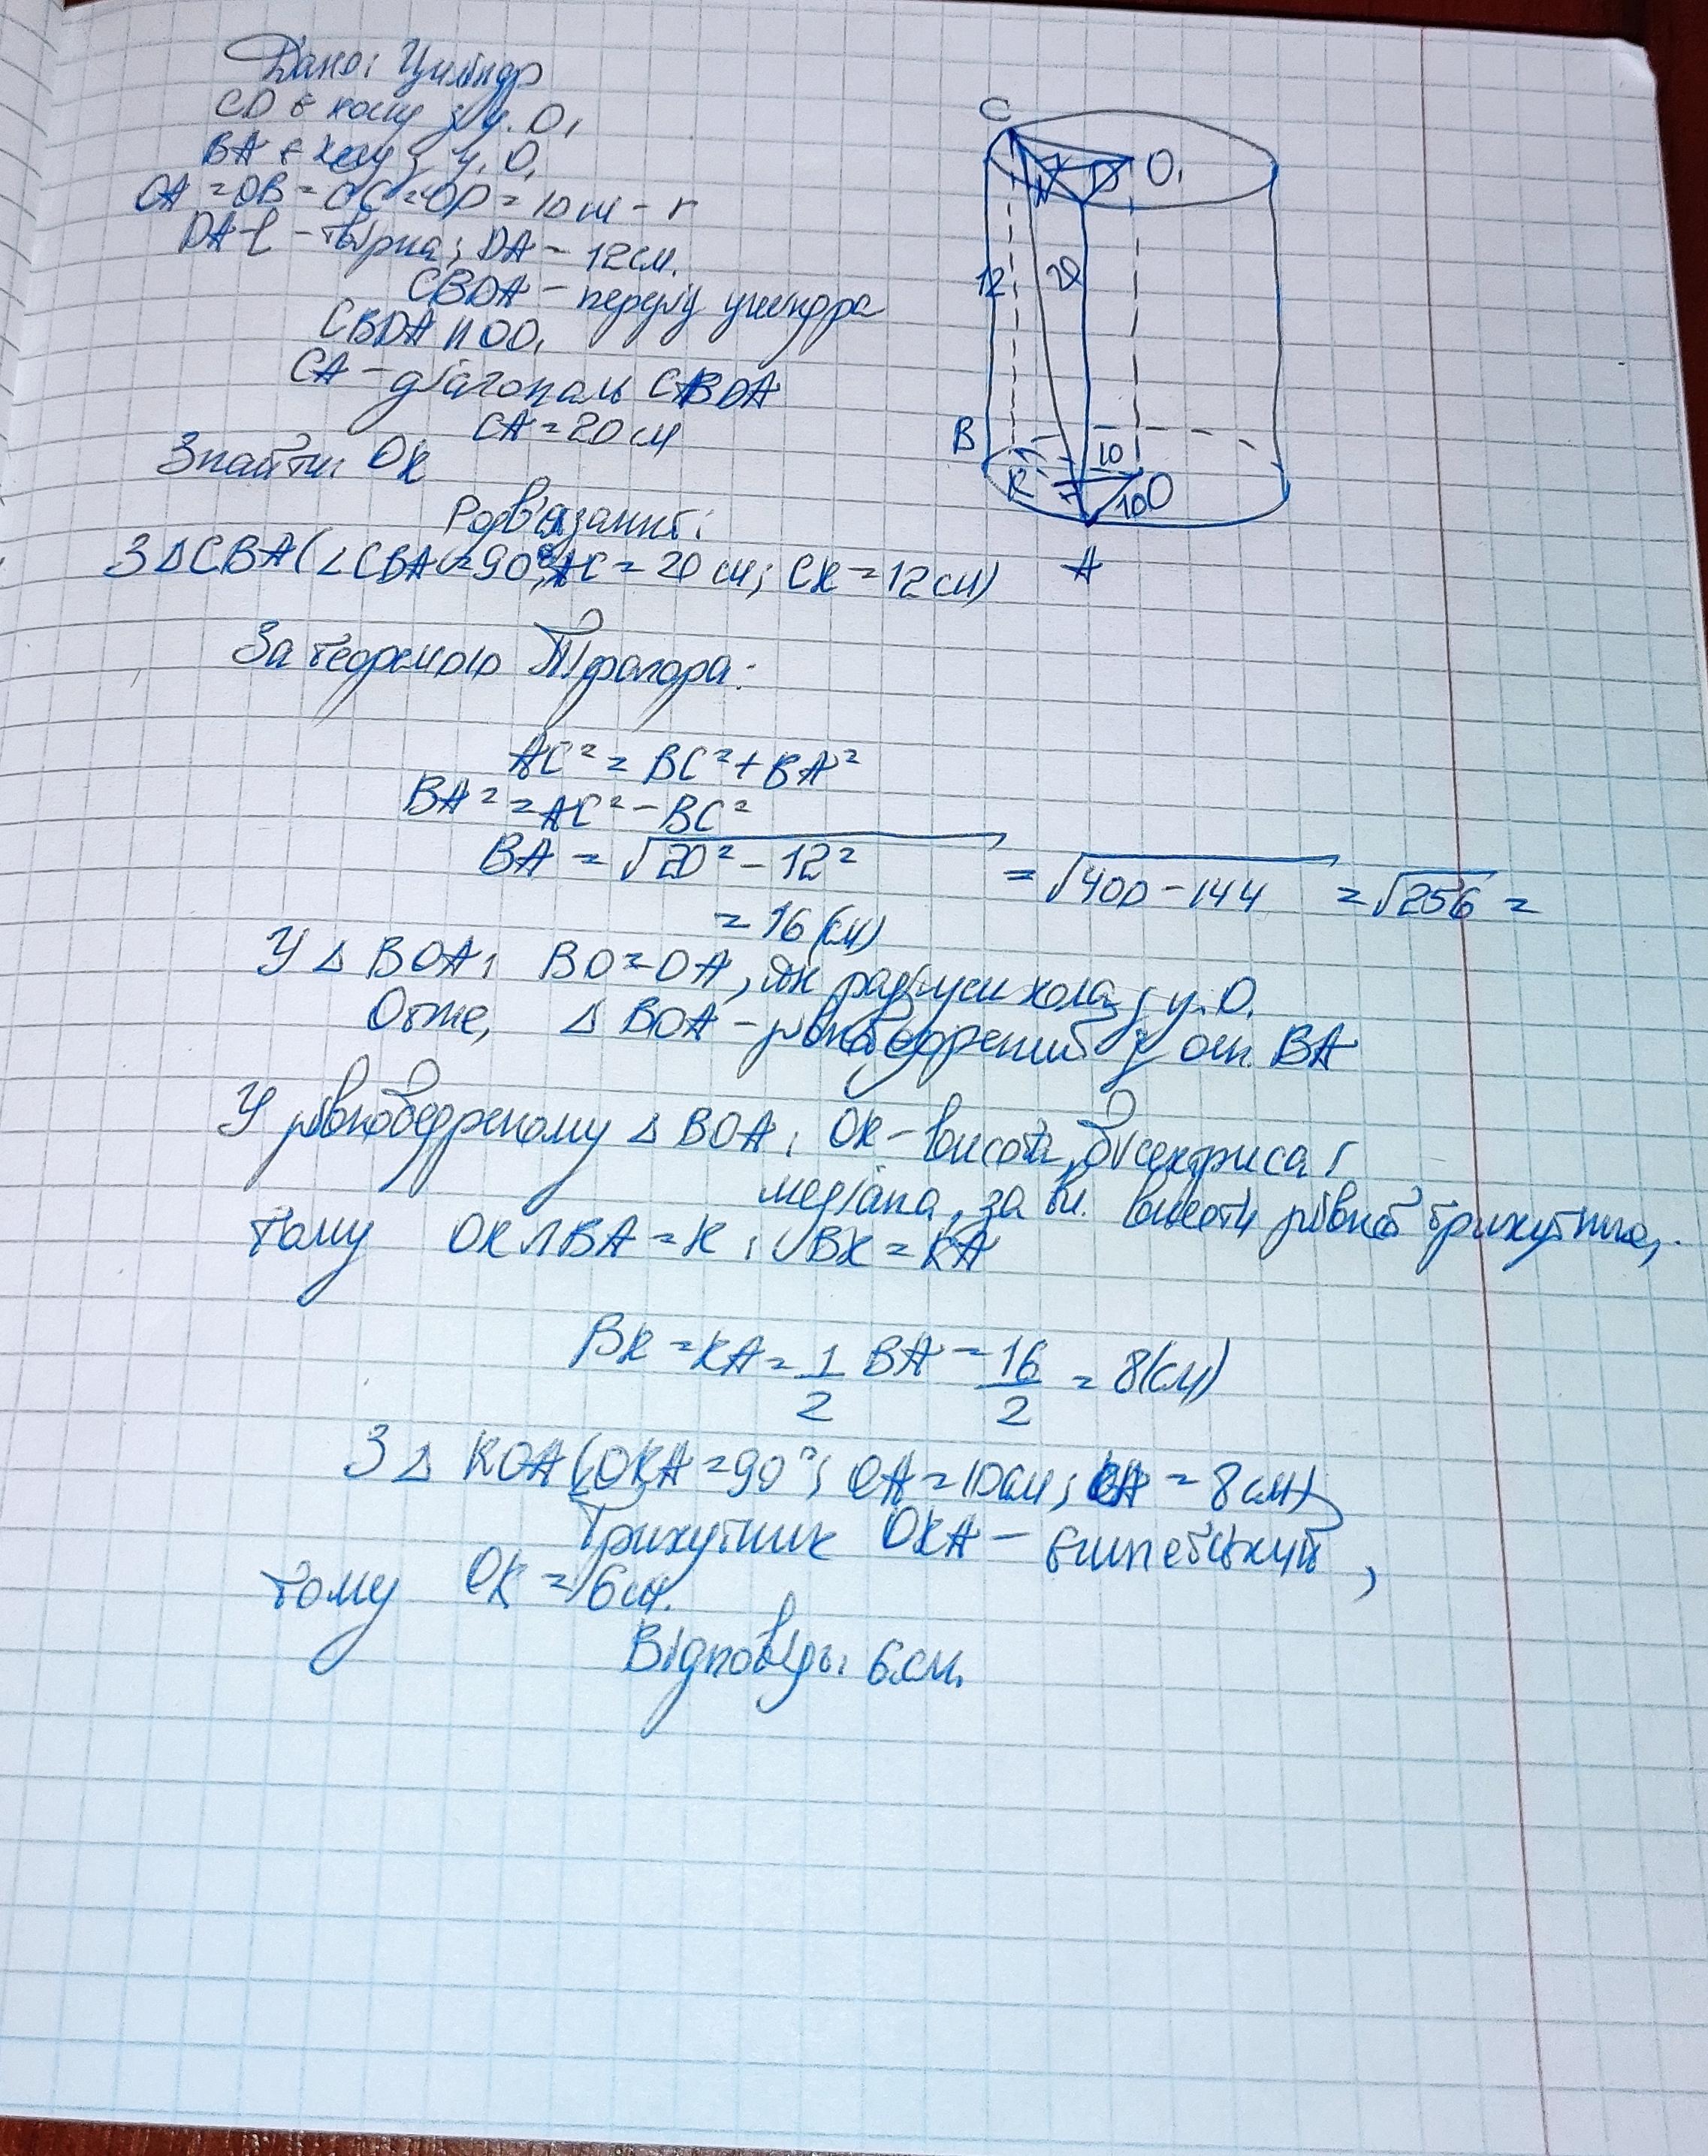 Дано: Циліндр
CD є колу з ц. O₁
BA є колу з ц. O,
OA = OB = OC = OD = 10 см - r
DA - l - твірна; DA = 12 см.
CBDA - переріз циліндра
CBDA ∥ OO₁
CA - діагональ CBDA
CA = 20 см
Знайти: OK
Розв'язання:
З △CBA (∠CBA = 90°; AC = 20 см; CK = 12 см)
За теоремою Піфагора:
AC² = BC² + BA²
BA² = AC² - BC²
BA = √20² - 12² = √400 - 144 = √256 =
= 16 (см)
У △ BOA: BO = OA, як радіуси кола з ц. O.
Отже, △ BOA - рівнобедрений з осн. BA
У рівнобедреному △ BOA: OK - висота, бісектриса і
медіана, за вл. висоти рівноб трикутника,
тому OK ∩ BA = K і BK = KA
BK = KA = 1/2 BA = 16/2 = 8 (см)
З △ KOA (OKA = 90°; OA = 10 см; = 8 см)
Трикутник OKA - египетський,
тому OK = 6 см.
Відповідь: 6 см.
C
O₁
12
20
B
K
10
10
O
A